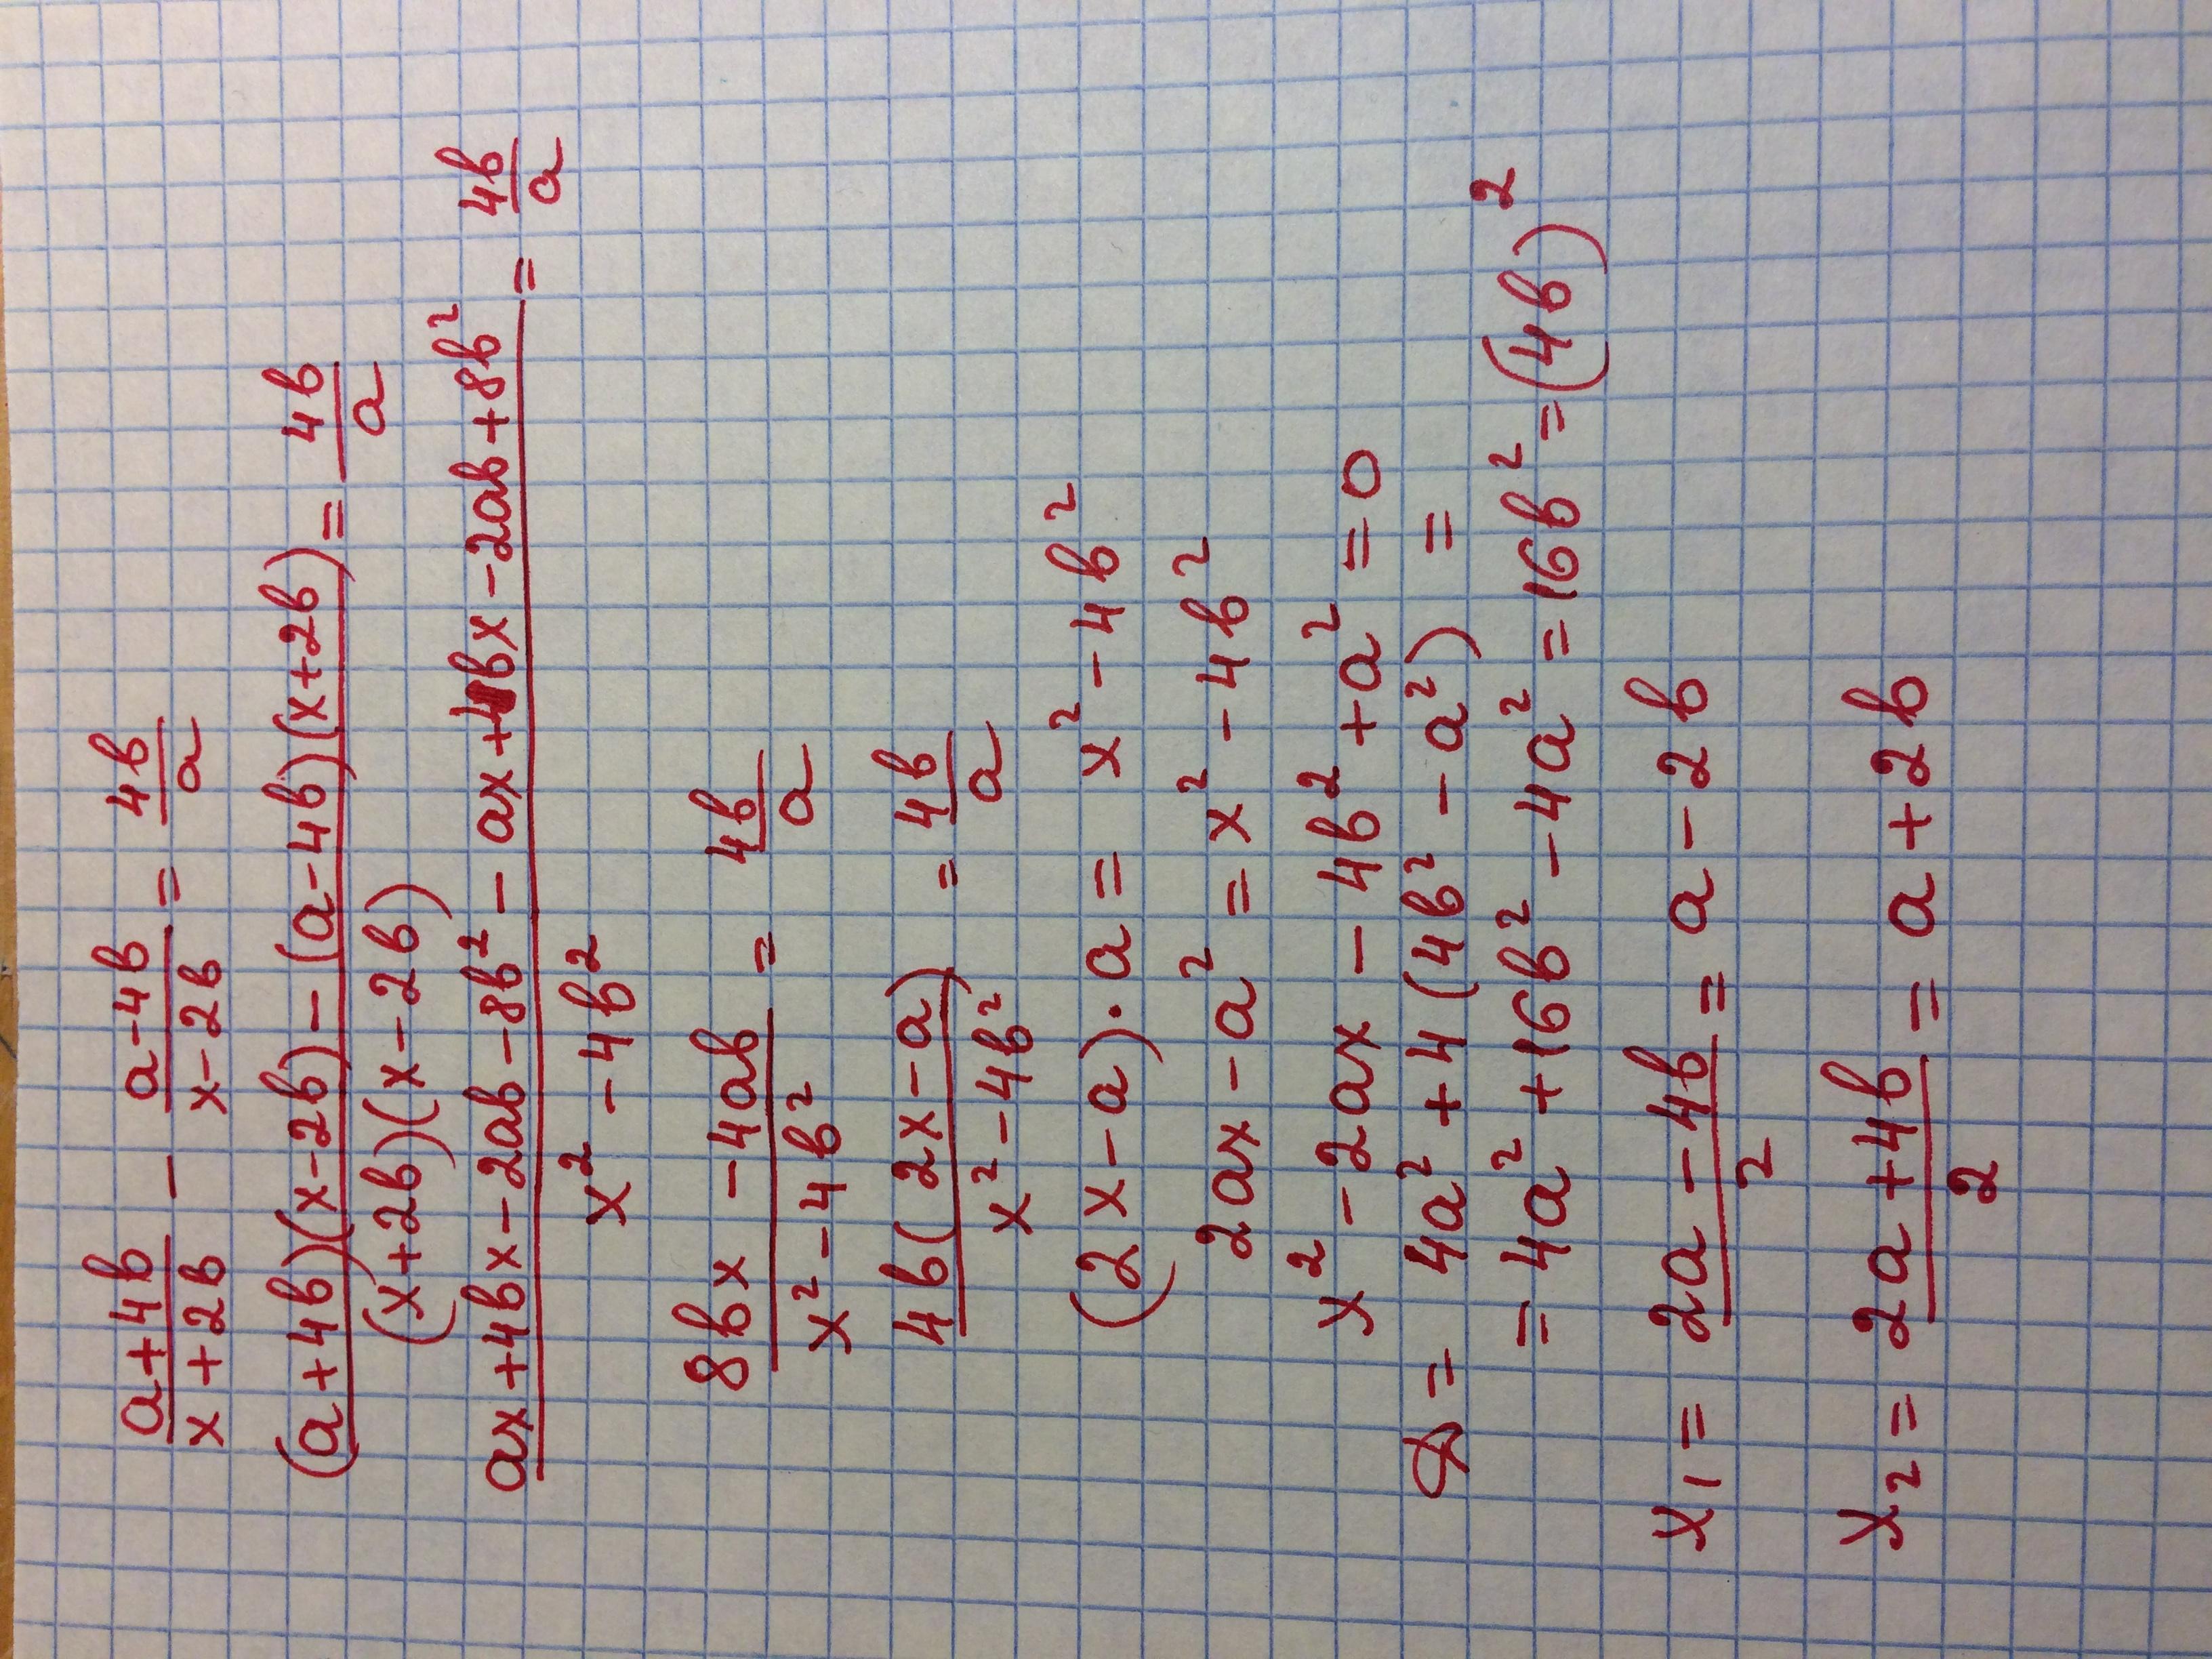 (a+4b)/(x+2b) - (a-4b)/(x-2b) = 4b/a
((a+4b)(x-2b)-(a-4b)(x+2b))/((x+2b)(x-2b)) = 4b/a
(ax+4bx-2ab-8b²-ax+4bx-2ab+8b²)/(x²-4b²) = 4b/a
(8bx-4ab)/(x²-4b²) = 4b/a
4b(2x-a)/(x²-4b²) = 4b/a
(2x-a)·a = x²-4b²
2ax-a² = x²-4b²
x²-2ax-4b²+a²=0
D= 4a²+4(4b²-a²) =
= 4a²+16b²-4a²=16b²=(4b)²
x₁= (2a-4b)/2 = a-2b
x₂= (2a+4b)/2 = a+2b